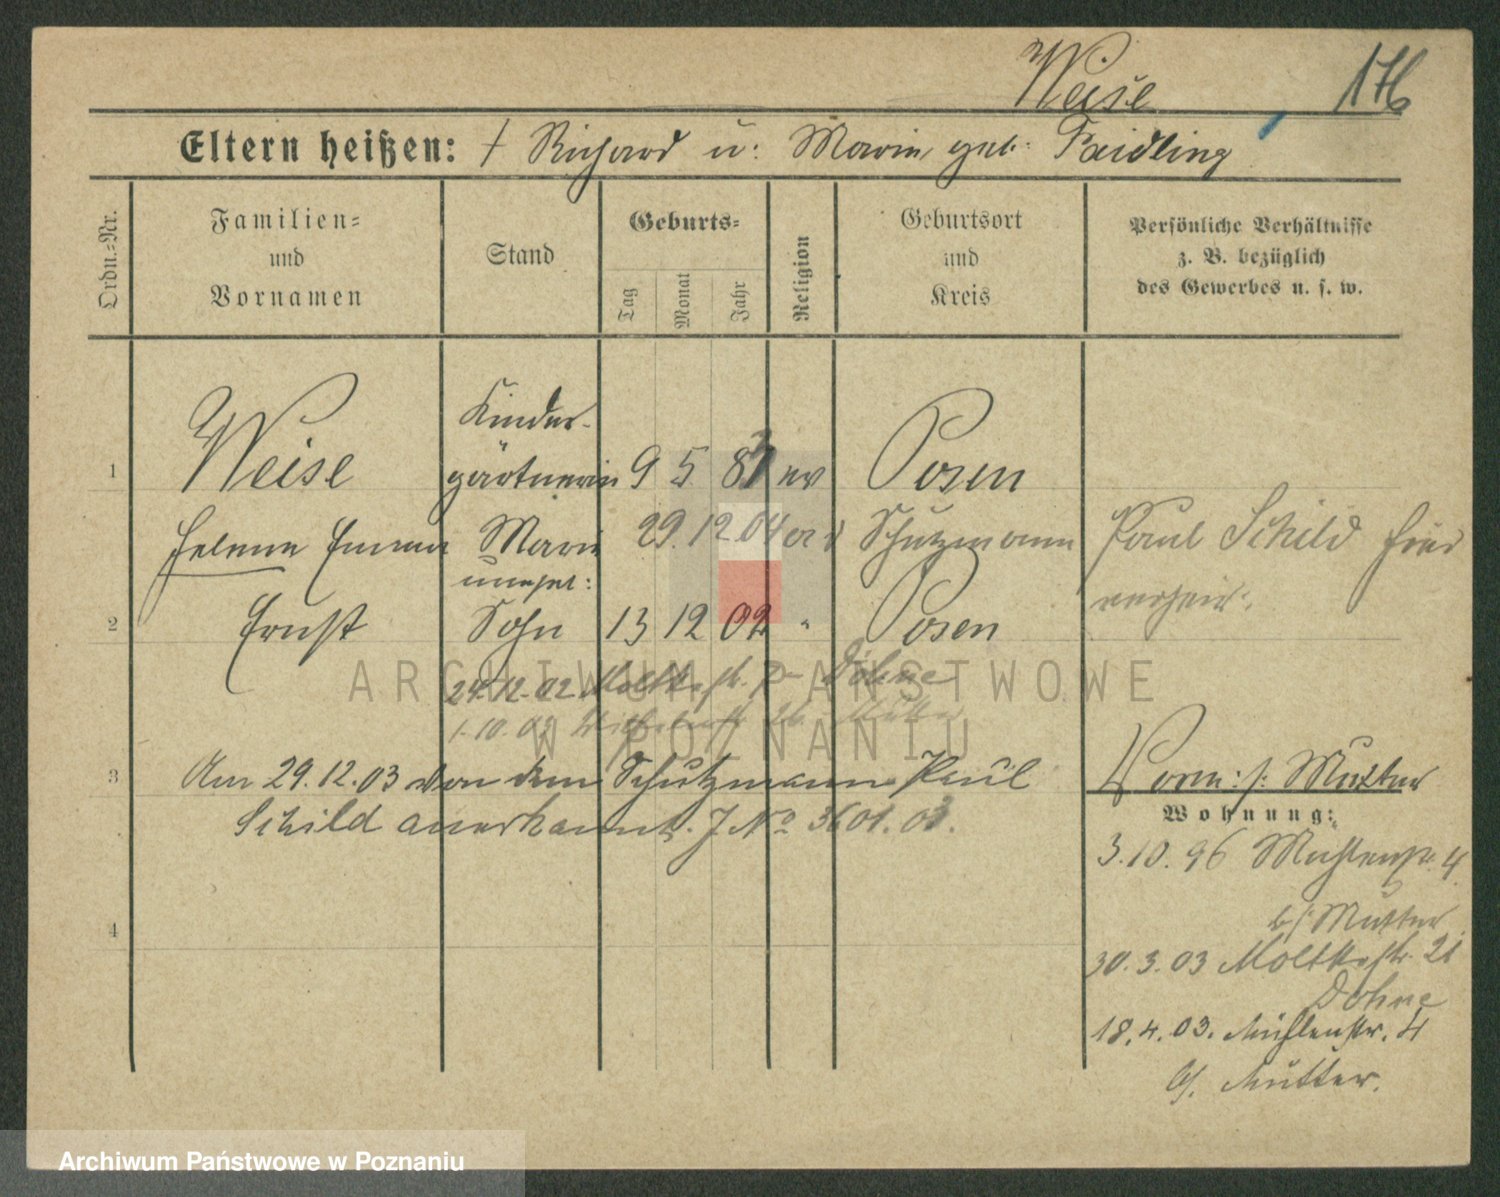 Weise 176
Eltern heißen: † Richard u: Marie geb: Paidling
Ordn.-Nr.
Familien-
und
Vornamen
Stand
Geburts-
Tag
Monat
Jahr
Religion
Geburtsort
und
Kreis
Persönliche Verhältnisse
z. B. bezüglich
des Gewerbes u. s. w.
Kinder-
1 Weise gärtnerin 9 5 83 ev Posen
Helene Emma Marie 29.12.04 Schutzmann Paul Schild hier
unehel: verheir.
2 Ernst Sohn 13 12 02 " Posen
24.12.02 Moltkestr. Döhne
1.10.03
3 Am 29.12.03 von dem Schutzmann Paul
Schild anerkannt. J No 3601.03.
Vorm: s: Mutter
Wohnung:
3.10.96 Mühlenstr. 4
b/ Mutter
30.3.03 Moltkestr. 21
Döhne
18.4.03. Mühlenstr. 4
b/. Mutter.
4
ARCHIWUM PAŃSTWOWE
W POZNANIU
Archiwum Państwowe w Poznaniu